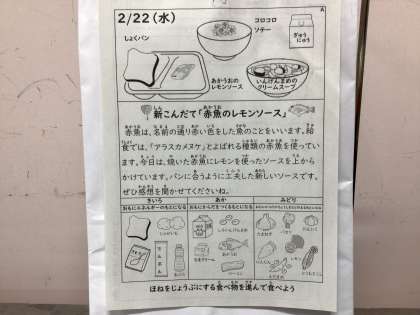 2/22(水)
コロコロ
ソテー
ぎゅう
にゅう
しょくパン
あかうおの
レモンソース
いんげんまめの
クリームスープ
新こんだて「赤魚のレモンソース」
赤魚は、名前の通り赤い色をした魚のことをいいます。給
食では、「アラスカメヌケ」とよばれる種類の赤魚を使ってい
ます。今日は、焼いた赤魚にレモンを使ったソースを上から
かけています。パンに合うように工夫した新しいソースです。
ぜひ感想を聞かせてくださいね。
きいろ
あか
みどり
おもにエネルギーのもとになる
ほねをじょうぶにする食べ物を進んで食べよう